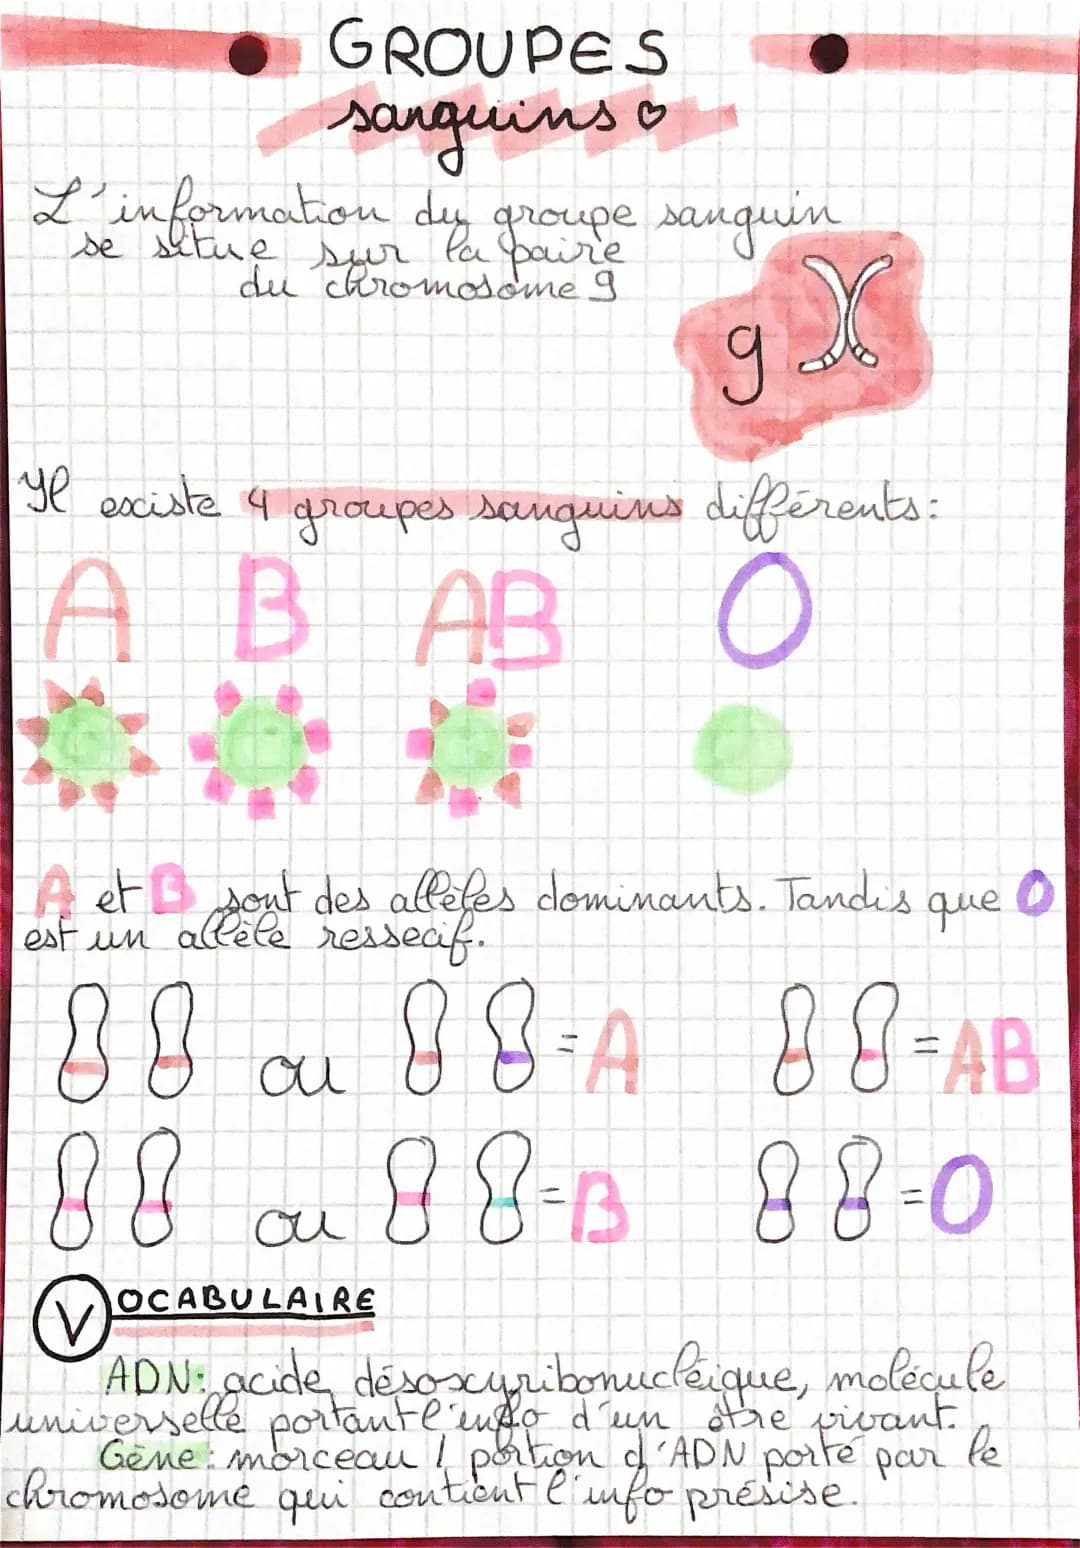 GROUPES
sanguins ♡
L'information du groupe sanguin
se situe sur la paire
du chromosome 9
9
Il existe 4 groupes sanguins différents:
A B AB O
A et B sont des allèles dominants. Tandis que O
est un allèle ressecif.
ou = A = AB
ou = B = O
VOCABULAIRE
ADN: acide désoxyribonucléique, molécule
universelle portant l'info d'un être vivant.
Gène: morceau / portion d'ADN porté par le
chromosome qui contient l'info présise.